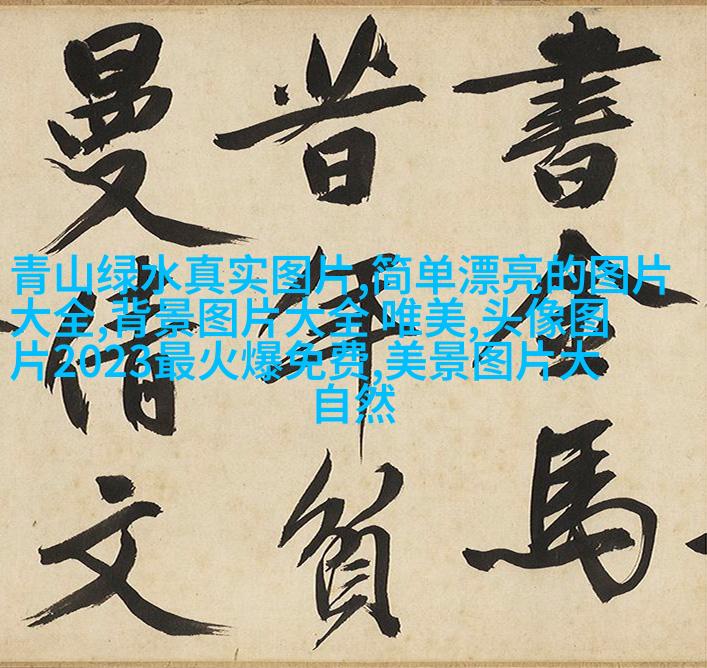 書金馬
昔年貧
曼倩文
青山绿水真实图片,简单漂亮的图片
大全,背景图片大全 唯美,头像图
片2023最火爆免费,美景图片大
自然